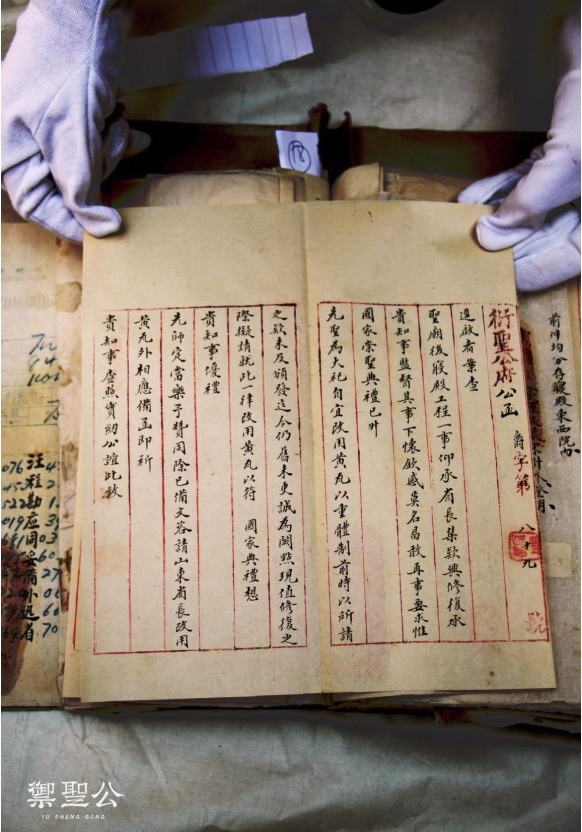 衍聖公府公函　爵字第　八十九　號
逕啟者案查
聖廟後寢殿工程一事仰承省長集款興修復承
貴知事監督其事下懷欽感莫名曷敢再事要求惟
國家崇聖典禮已升
先聖為大祀自宜改用黃瓦以重體制前時以所請
之款未及頒發迄今仍舊未更誠為闕點現值修復之
際擬請就此一律改用黃瓦以符　國家典禮想
貴知事優禮
先師定當樂予贊同除已備文咨請山東省長改用
黃瓦外相應備函即祈
貴知事查照實紉公誼此致
前件均分存寢殿東西院內
⑱
禦聖公
YU SHENG GONG